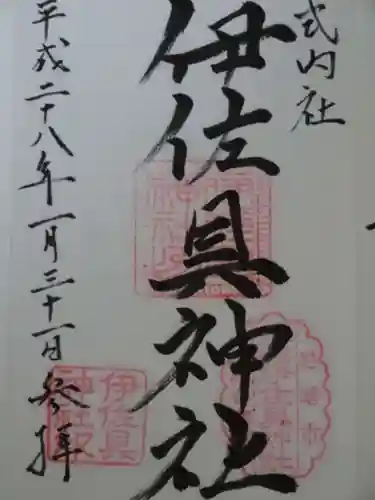 式内社
伊佐具神社
平成二十八年一月三十一日参拝
伊佐具
神社印